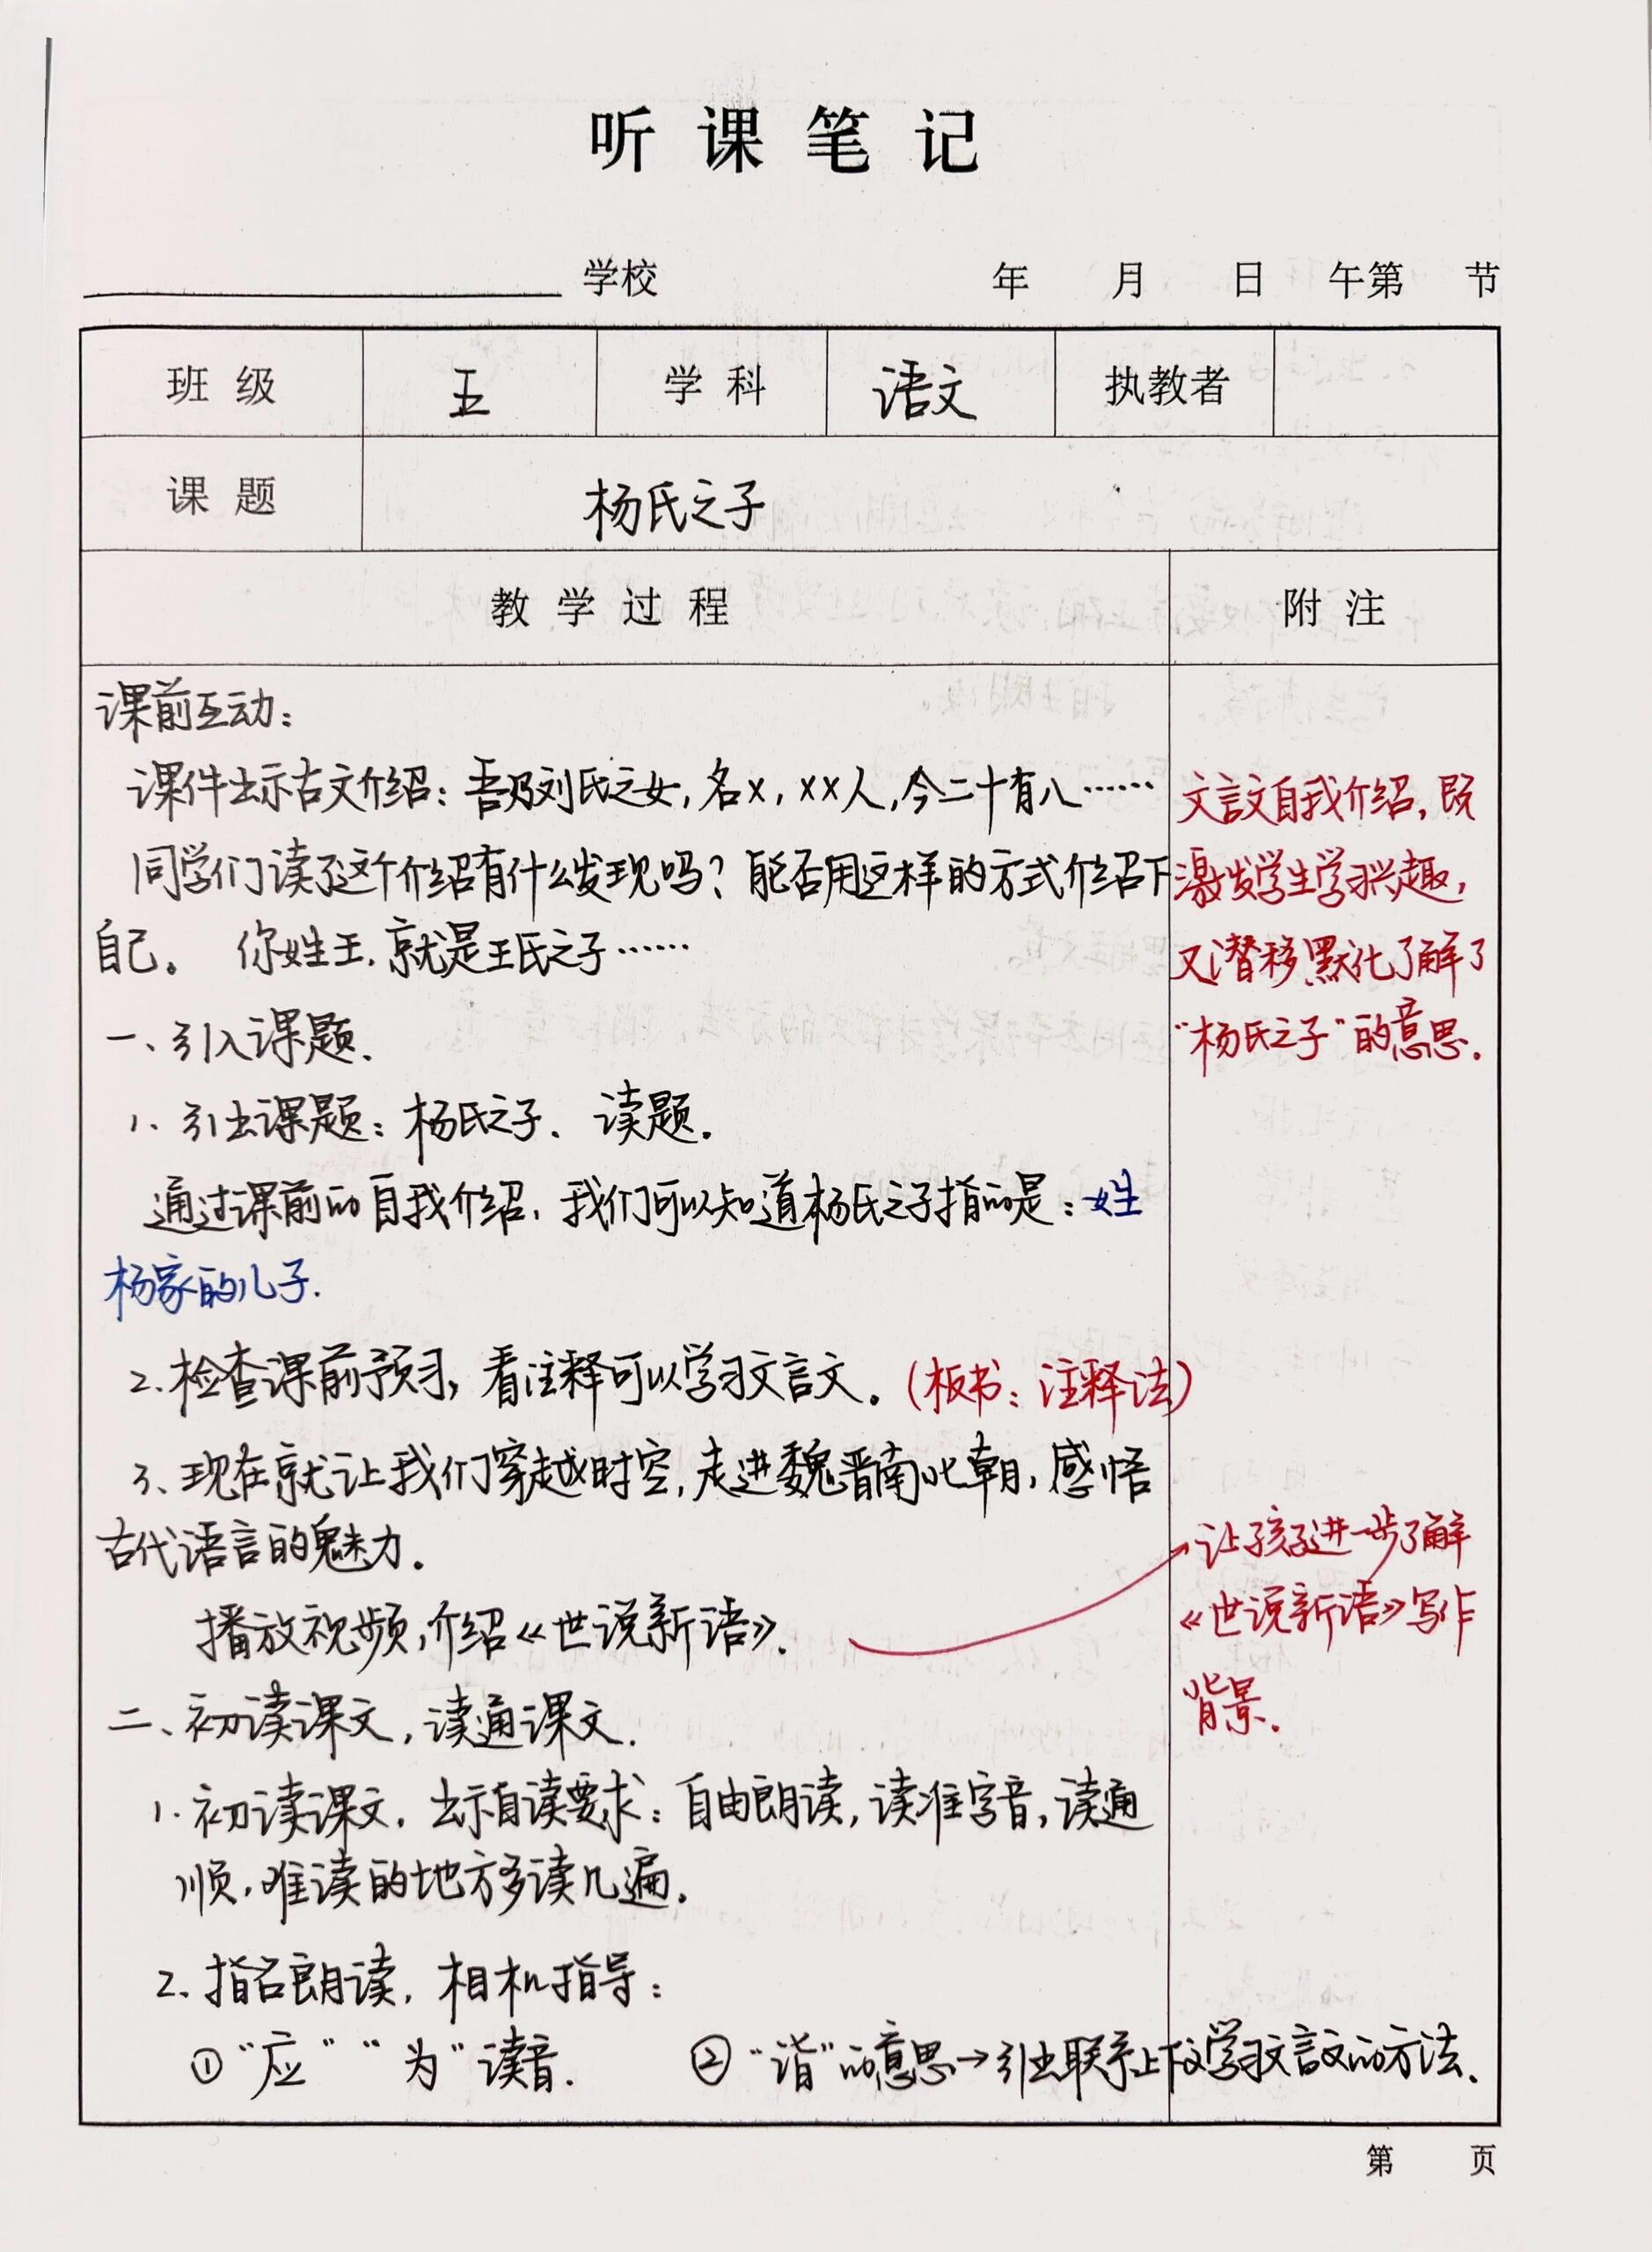 听课笔记
学校 年 月 日 午第 节
班级 五 学科 语文 执教者
课题 杨氏之子
教学过程 附注
课前互动：
课件出示古文介绍：吾乃刘氏之女，名x，xx人，今二十有八……
同学们读了这个介绍有什么发现吗？能否用这样的方式介绍下
自己。 你姓王，就是王氏之子……
文言文自我介绍，既
激发学生学习兴趣，
又潜移默化了解了
“杨氏之子”的意思.
一、引入课题.
1、引出课题：杨氏之子、读题.
通过课前的自我介绍，我们可以知道杨氏之子指的是：姓
杨家的儿子.
2.检查课前预习，看注释可以学习文言文。(板书：注释法)
3、现在就让我们穿越时空，走进魏晋南北朝，感悟
古代语言的魅力.
播放视频，介绍《世说新语》.
让孩子进一步了解
《世说新语》写作
背景.
二、初读课文，读通课文.
1.初读课文，出示自读要求：自由朗读，读准字音，读通
顺，难读的地方多读几遍.
2、指名朗读，相机指导：
①“应”“为”读音. ②“诣”的意思→引出联系上下文学习文言文的方法.
第 页